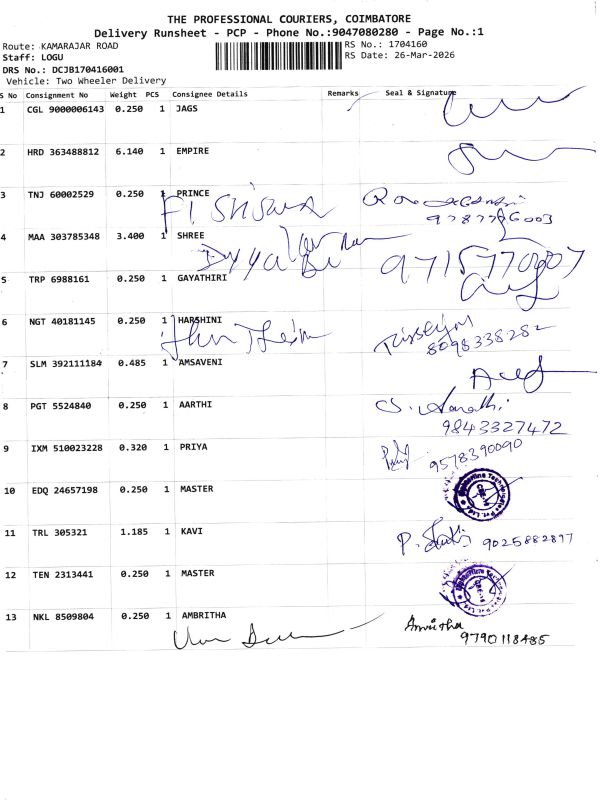 THE PROFESSIONAL COURIERS, COIMBATORE
Delivery Runsheet - PCP - Phone No.:9047080280 - Page No.:1
Route: KAMARAJAR ROAD RS No.: 1704160
Staff: LOGU RS Date: 26-Mar-2026
DRS No.: DCJB170416001
Vehicle: Two Wheeler Delivery
S No Consignment No Weight PCS Consignee Details Remarks Seal & Signature
1 CGL 9000006143 0.250 1 JAGS
2 HRD 363488812 6.140 1 EMPIRE
3 TNJ 60002529 0.250 1 PRINCE
4 MAA 303785348 3.400 1 SHREE
9715770007
5 TRP 6988161 0.250 1 GAYATHIRI
6 NGT 40181145 0.250 1 HARSHINI
8098338282
7 SLM 392111184 0.485 1 AMSAVENI
8 PGT 5524840 0.250 1 AARTHI
9843327472
9 IXM 510023228 0.320 1 PRIYA
9578390090
10 EDQ 24657198 0.250 1 MASTER
11 TRL 305321 1.185 1 KAVI
9025882897
12 TEN 2313441 0.250 1 MASTER
13 NKL 8509804 0.250 1 AMBRITHA
Amritha
9790118485